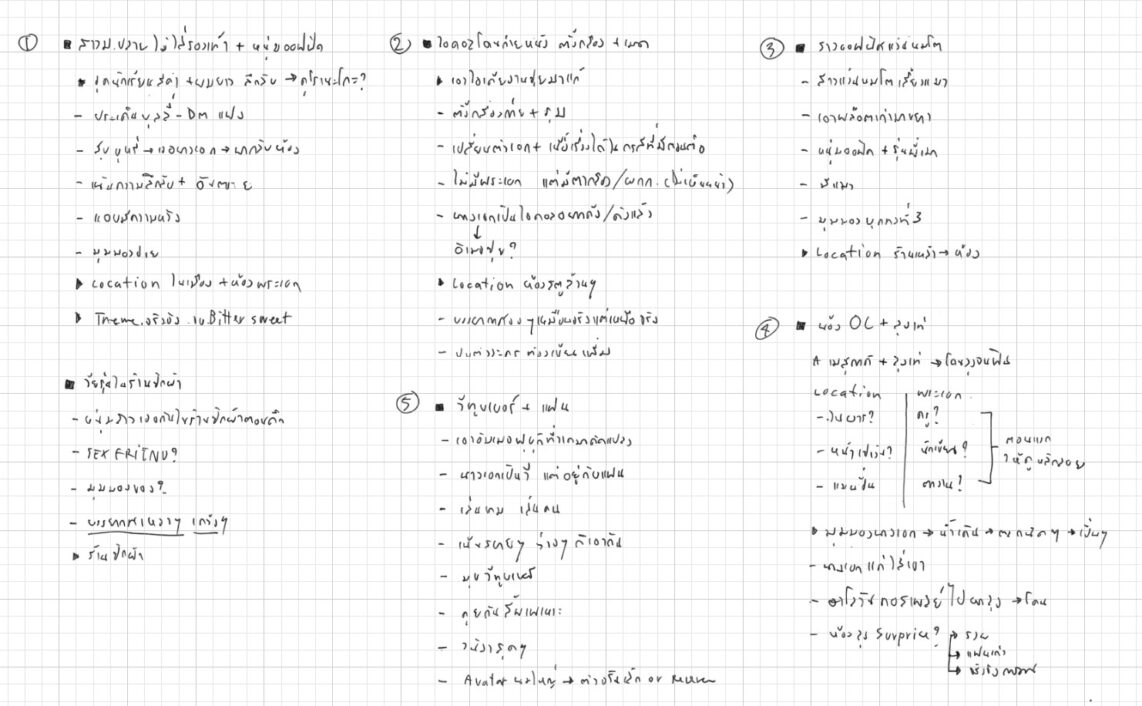 ①
■ สาวม.ปลาย ไม่ใส่รองเท้า + หนุ่มออฟฟิต
▸ ชุดนักเรียนสีดำ + ผมยาว ลึกลับ → คุโรเนะโกะ?
- ประเด็นบุลลี่ - DM แฝง
- สูบบุหรี่ → เจอนางเอก → พากลับห้อง
- เน้นความลึกลับ + อันตราย
- แอบมีความหวัง
- มุมมองชาย
▸ Location ในเมือง + ห้องพระเอก
▸ Theme จริงจัง จบ Bitter sweet
■ วัยรุ่นในร้านซักผ้า
- หนุ่มสาวเจอกันในร้านซักผ้าตอนดึก
- SEX FRIEND?
- มุมมองของ?
- บรรยากาศเหงาๆ เคว้งๆ
▸ ร้านซักผ้า
②
■ ไอดอลโดนถ่ายหนัง ตั้งกล้อง +
▸ เอาไอเดียงานซุยมาแก้
- ตั้งกล้องถ่าย + รุม
- เปลี่ยนตัวเอก + เนื้อเรื่องได้ในกรณีที่มีตอนต่อ
- ไม่มีพระเอก แต่มีตากล้อง/ผกก. (ไม่เห็นหน้า)
- นางเอกเป็นไอดอลอยากดัง/ดังแล้ว
↓
▸ Location ห้องสตูล้านๆ
- บรรยากาศหลอนๆ เหมือนจริงแต่เหนือจริง
- ปมตัวละคร ต้องเขียนเพิ่ม
③
■ สาวออฟฟิศแว่นนมโต
- สาวแว่นนมโตเลี้ยงแมว
- เอาพล็อตเก่ามายำ
- หนุ่มออฟฟิต + รุ่นพี่เมา
- มีแมว
- มุมมองบุคคลที่ 3
▸ Location ร้านเหล้า → ห้อง
④
■ น้อง OL + ลุงเท่
A เมสุกากิ + ลุงเท่ → โดนลุงจนฟิน
Location | พระเอก
- ในบาร์? | ครู?
- หน้าเซเว่น? | นักเขียน?
- แมนชั่น | ตางาน?
ตอนแรก
ให้ดูหลักลอย
▸ มุมมองนางเอก → น้ำเดิน → ตลกนิดๆ → เงี่ยนๆ
- นางเอกแก่ใส่เอว
- ฮาโลวีนคอสเพลย์ไปยกลุง → โดน
- ห้องลุง Surprice? → รวย
→ แฟนเก่า
→
⑤
■ วีทูบเบอร์ + แฟน
- นางเอกเป็นวี แต่อยู่กับแฟน
- เล่นเกม เล่นคน
- เน้นรายๆ ร่างๆ ดิเอากัน
- มุขวีทูบเบอร์
- คุยกันสัพเพเหระ
- วาบิงารุดๆ
- Avatar นมใหญ่ → ตัวจริงเล็ก or